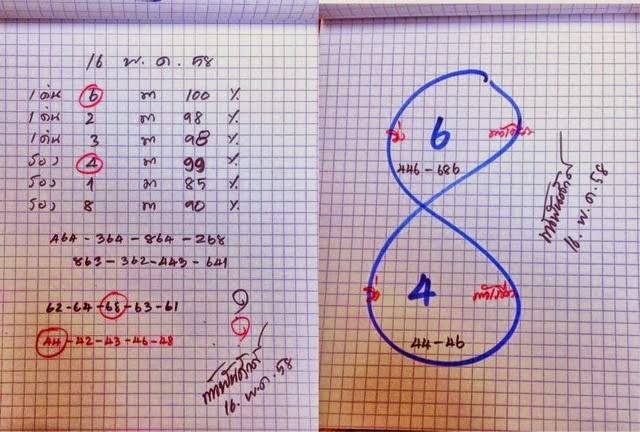 16 พ.ค. 58
เด่น 6 มา 100 %
เด่น 2 มา 98 %
เด่น 3 มา 98 %
รอง 4 มา 99 %
รอง 1 มา 85 %
รอง 8 มา 90 %
464 - 364 - 864 - 268
863 - 362 - 443 - 641
62 - 64 - 68 - 63 - 61
44 - 42 - 43 - 46 - 48
16. พ.ค. 58
6
446 - 686
4
44 - 46
16. พ.ค. 58